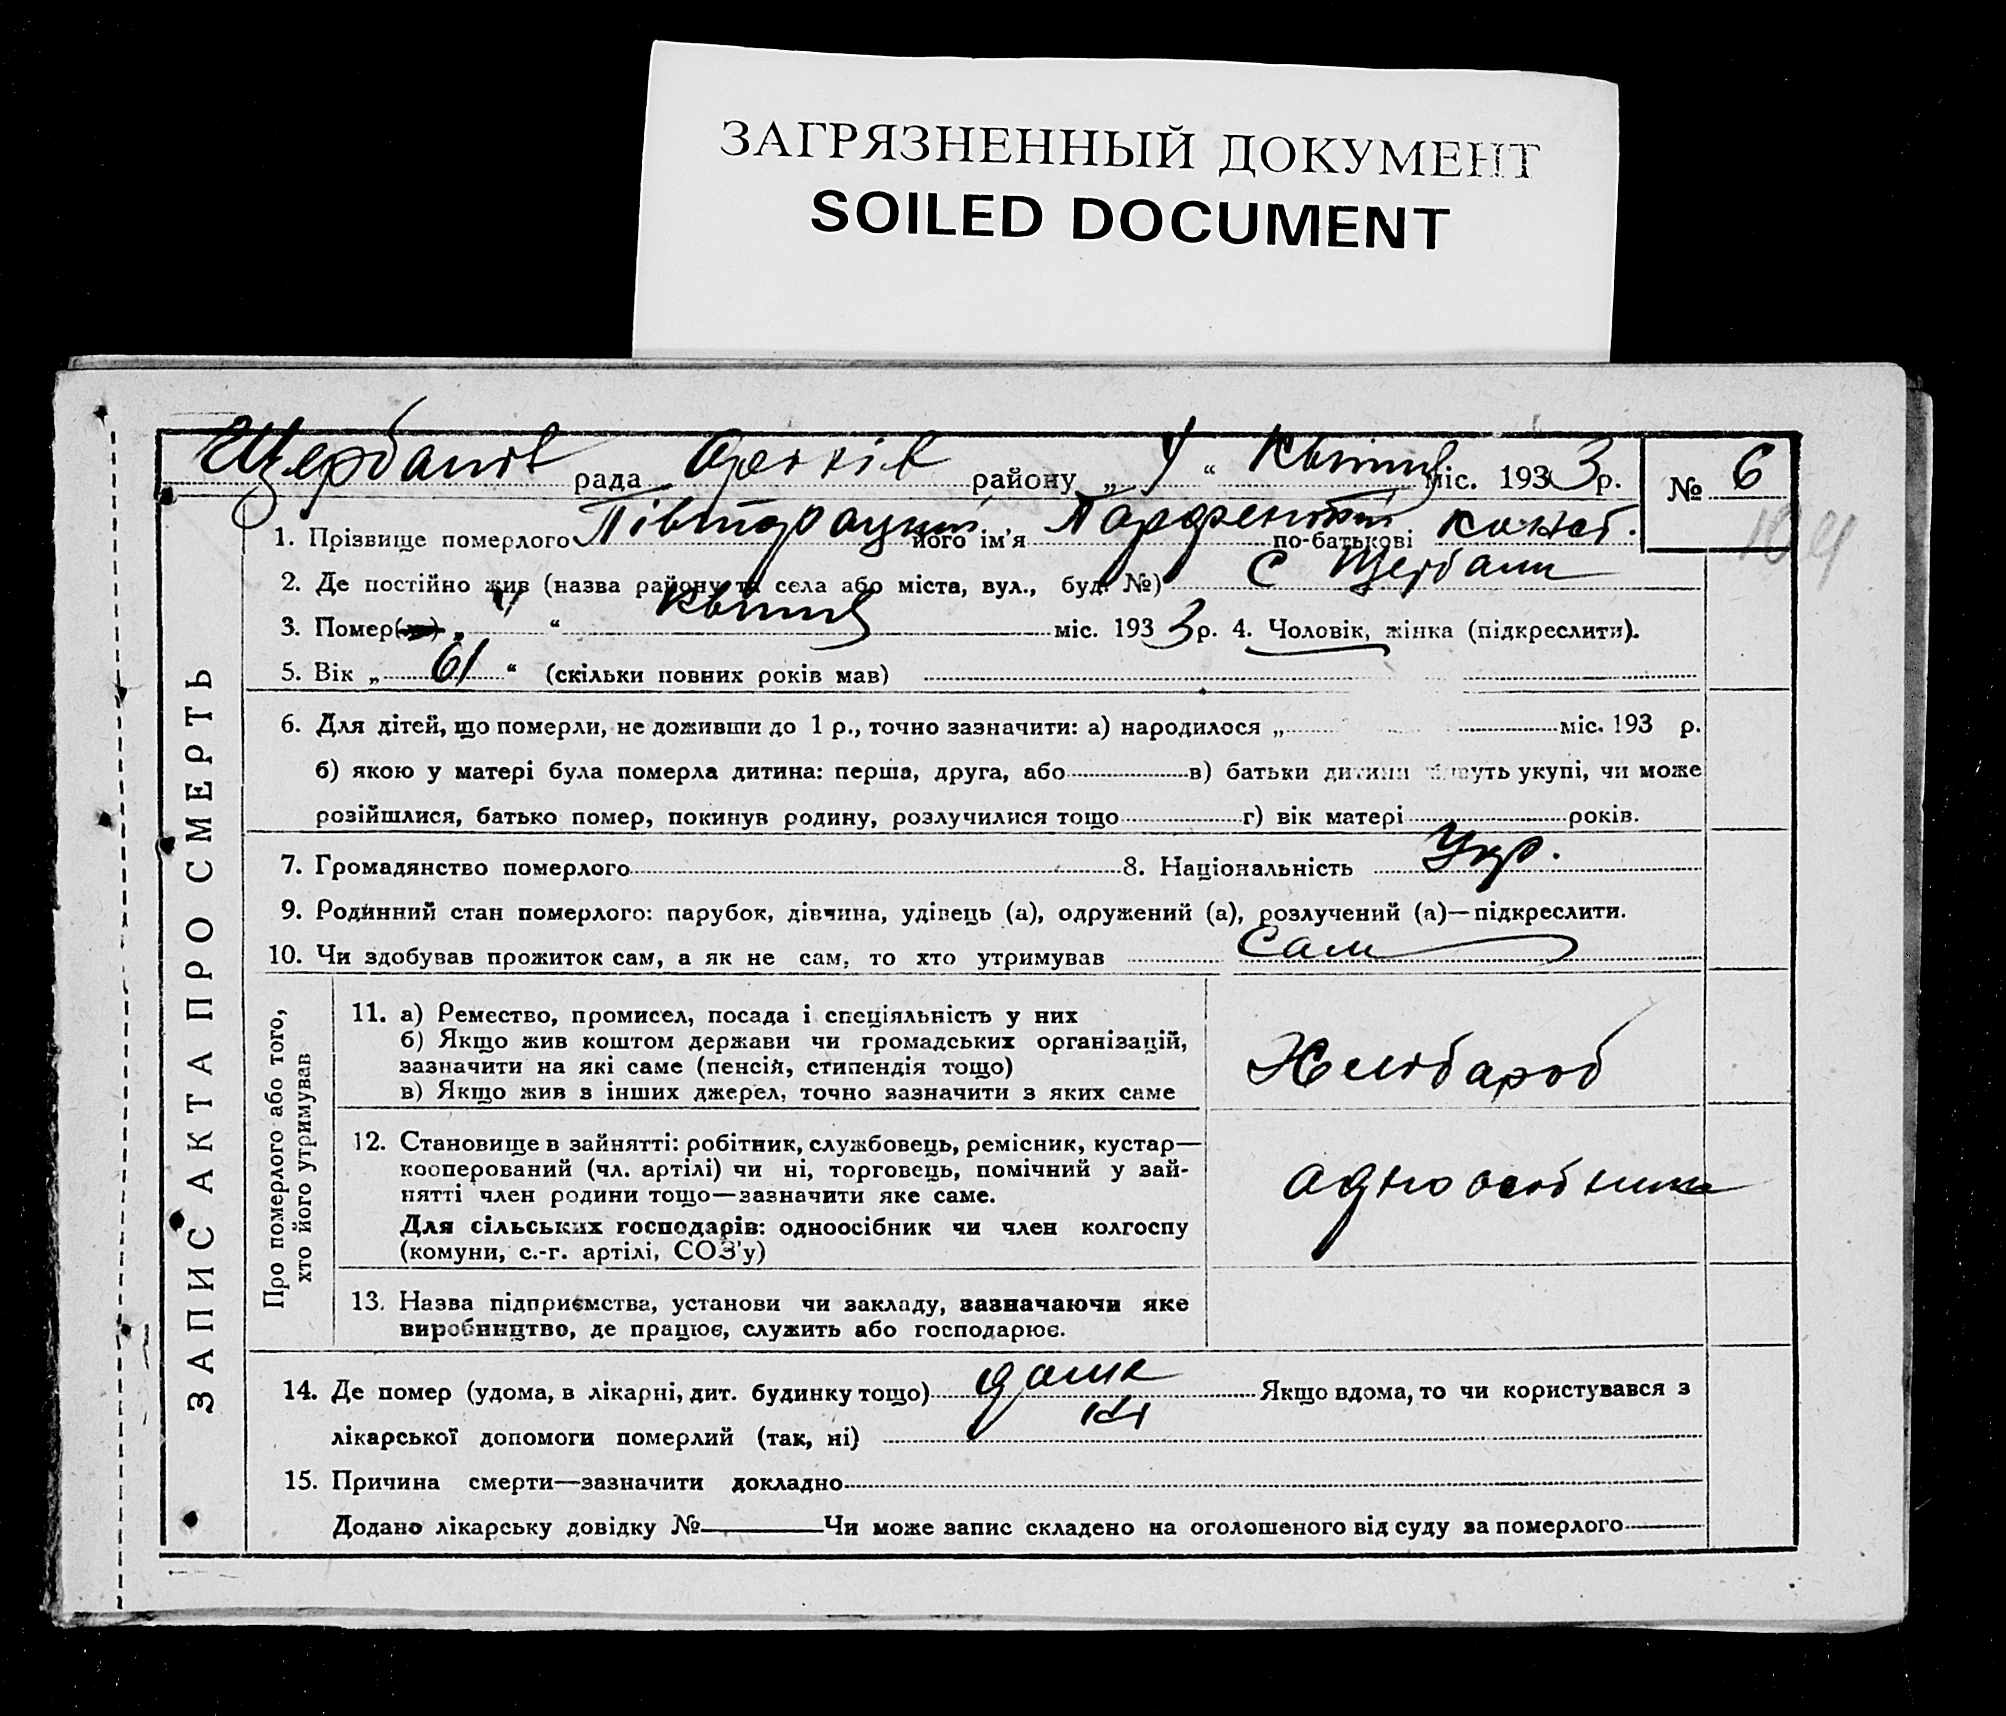 ЗАГРЯЗНЕННЫЙ ДОКУМЕНТ
SOILED DOCUMENT
рада району „ 4 “ Квітня міс. 1933 р. № 6
1. Прізвище померлого його ім'я по-батькові
2. Де постійно жив (назва району та села або міста, вул., буд. №) с Щербани
3. Помер(ла) „ “ Квітня міс. 1933 р. 4. Чоловік, жінка (підкреслити).
5. Вік „ 61 “ (скільки повних років мав)
6. Для дітей, що померли, не доживши до 1 р., точно зазначити: а) народилося „ міс. 193 р.
б) якою у матері була померла дитина: перша, друга, або в) батьки дитини живуть укупі, чи може
розійшлися, батько помер, покинув родину, розлучилися тощо г) вік матері років.
7. Громадянство померлого 8. Національність Укр.
9. Родинний стан померлого: парубок, дівчина, удівець (а), одружений (а), розлучений (а)—підкреслити.
10. Чи здобував прожиток сам, а як не сам, то хто утримував сам
ЗАПИС АКТА ПРО СМЕРТЬ
Про померлого або того,
хто його утримував
11. а) Ремество, промисел, посада і спеціяльність у них
б) Якщо жив коштом держави чи громадських організацій,
зазначити на які саме (пенсія, стипендія тощо)
в) Якщо жив з інших джерел, точно зазначити з яких саме
Хлібароб
12. Становище в зайнятті: робітник, службовець, ремісник, кустар—
кооперований (чл. артілі) чи ні, торговець, помічний у зай-
нятті член родини тощо—зазначити яке саме.
Для сільських господарів: одноосібник чи член колгоспу
(комуни, с.-г. артілі, СОЗ'у)
одноосібник
13. Назва підприємства, установи чи закладу, зазначаючи яке
виробництво, де працює, служить або господарює.
14. Де помер (удома, в лікарні, дит. будинку тощо) дома Якщо вдома, то чи користувався з
лікарської допомоги померлий (так, ні) ні
15. Причина смерти—зазначити докладно
Додано лікарську довідку № Чи може запис складено на оголошеного від суду за померлого